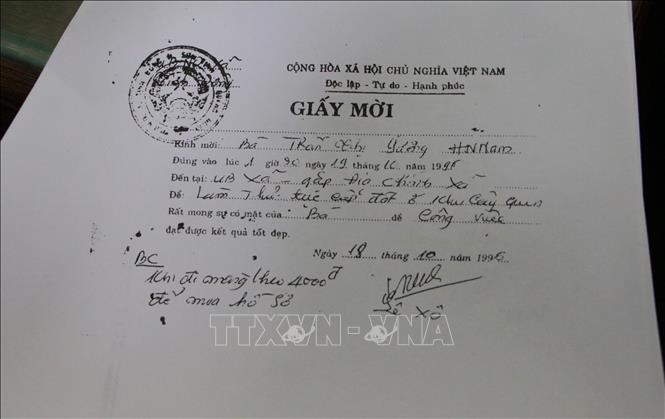 CỘNG HÒA XÃ HỘI CHỦ NGHĨA VIỆT NAM
Độc lập - Tự do - Hạnh phúc
GIẤY MỜI
Kính mời: Bà Trần Thị HN Nam
Đúng vào lúc 1 giờ 30 ngày 19 tháng 10 năm 1996
Đến tại: UB Xã - gặp Địa Chính Xã
Để: Làm Thủ tục cấp đất ở Khu Cây
Rất mong sự có mặt của Bà để Công việc
đạt được kết quả tốt đẹp.
Ngày 18 tháng 10 năm 1996
BC
Khi đi mang theo 4000đ
để mua hồ sơ
Lê Xô
TTXVN - VNA